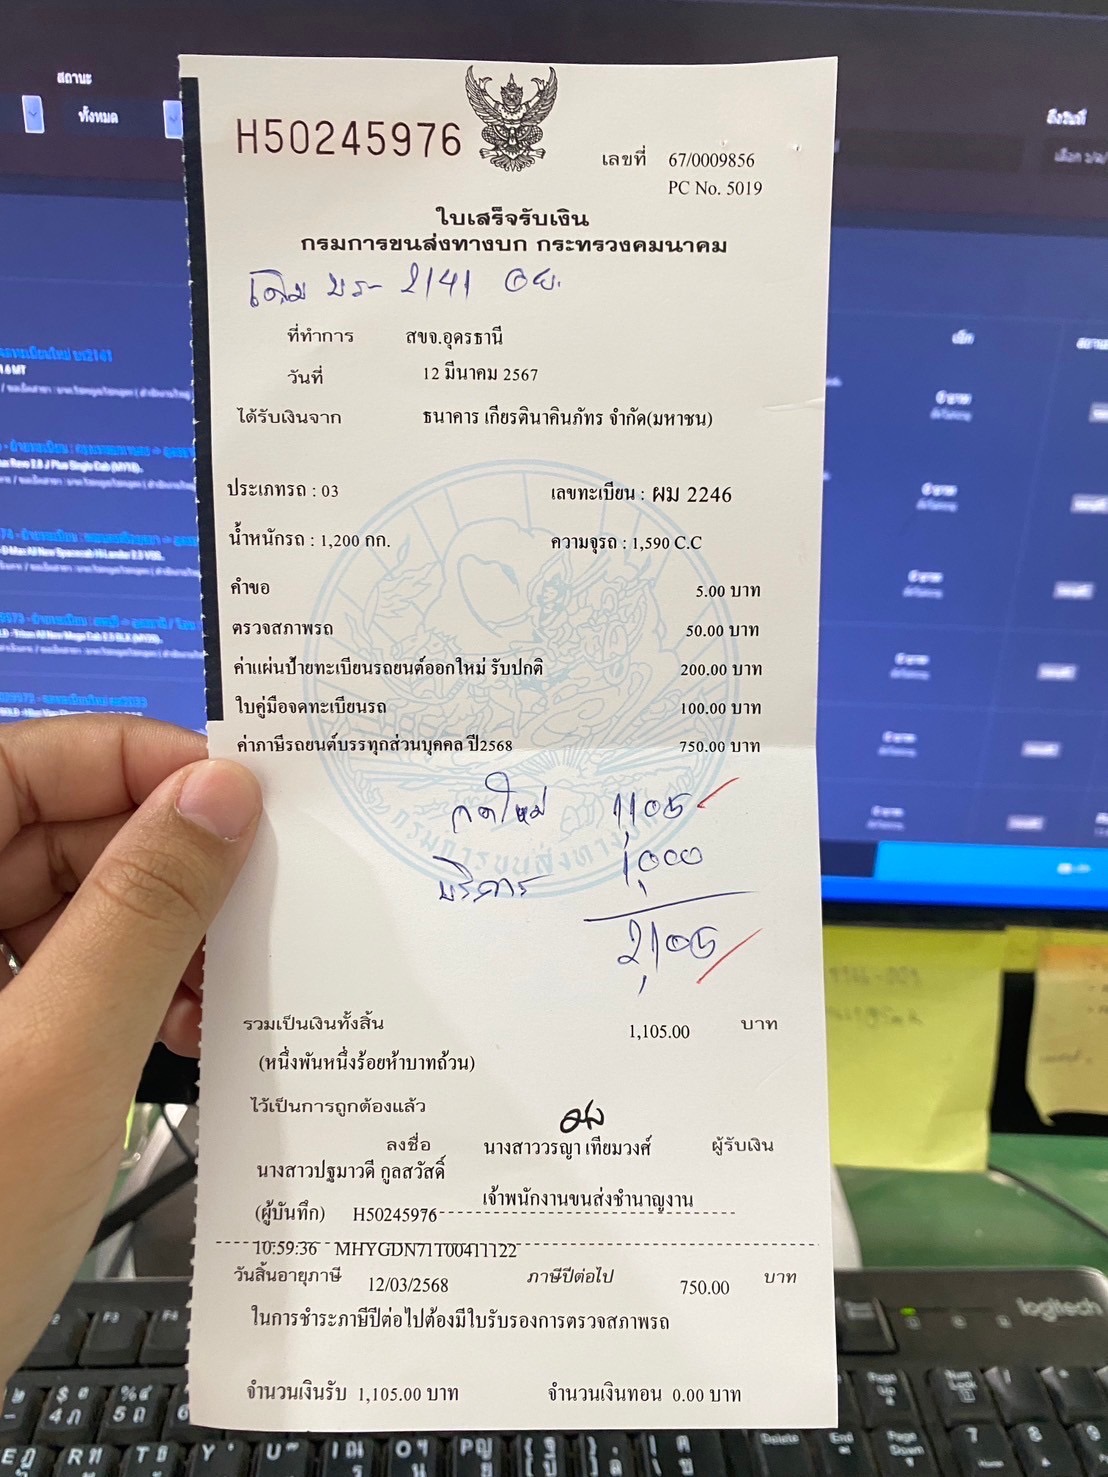 สถานะ
ทั้งหมด
ถึงวันที่
H50245976
เลขที่ 67/0009856
PC No. 5019
ใบเสร็จรับเงิน
กรมการขนส่งทางบก กระทรวงคมนาคม
เดิม บร- 2141 อย.
ที่ทำการ สขจ.อุดรธานี
วันที่ 12 มีนาคม 2567
ได้รับเงินจาก ธนาคาร เกียรตินาคินภัทร จำกัด(มหาชน)
ประเภทรถ : 03 เลขทะเบียน : ผม 2246
น้ำหนักรถ : 1,200 กก. ความจุรถ : 1,590 C.C
คำขอ 5.00 บาท
ตรวจสภาพรถ 50.00 บาท
ค่าแผ่นป้ายทะเบียนรถยนต์ออกใหม่ รับปกติ 200.00 บาท
ใบคู่มือจดทะเบียนรถ 100.00 บาท
ค่าภาษีรถยนต์บรรทุกส่วนบุคคล ปี2568 750.00 บาท
กรมการขนส่งทางบก
จดใหม่ 1,105
บริการ 1,000
2,105
รวมเป็นเงินทั้งสิ้น 1,105.00 บาท
(หนึ่งพันหนึ่งร้อยห้าบาทถ้วน)
ไว้เป็นการถูกต้องแล้ว
ลงชื่อ นางสาววรญา เทียมวงศ์ ผู้รับเงิน
นางสาวปฐมาวดี กูลสวัสดิ์
เจ้าพนักงานขนส่งชำนาญงาน
(ผู้บันทึก) H50245976
10:59:36 MHYGDN71T00411122
วันสิ้นอายุภาษี 12/03/2568 ภาษีปีต่อไป 750.00 บาท
ในการชำระภาษีปีต่อไปต้องมีใบรับรองการตรวจสภาพรถ
จำนวนเงินรับ 1,105.00 บาท จำนวนเงินทอน 0.00 บาท
logitech
F3 F4
Page Up
Num Lock
Delete End Page Down 7 8 9